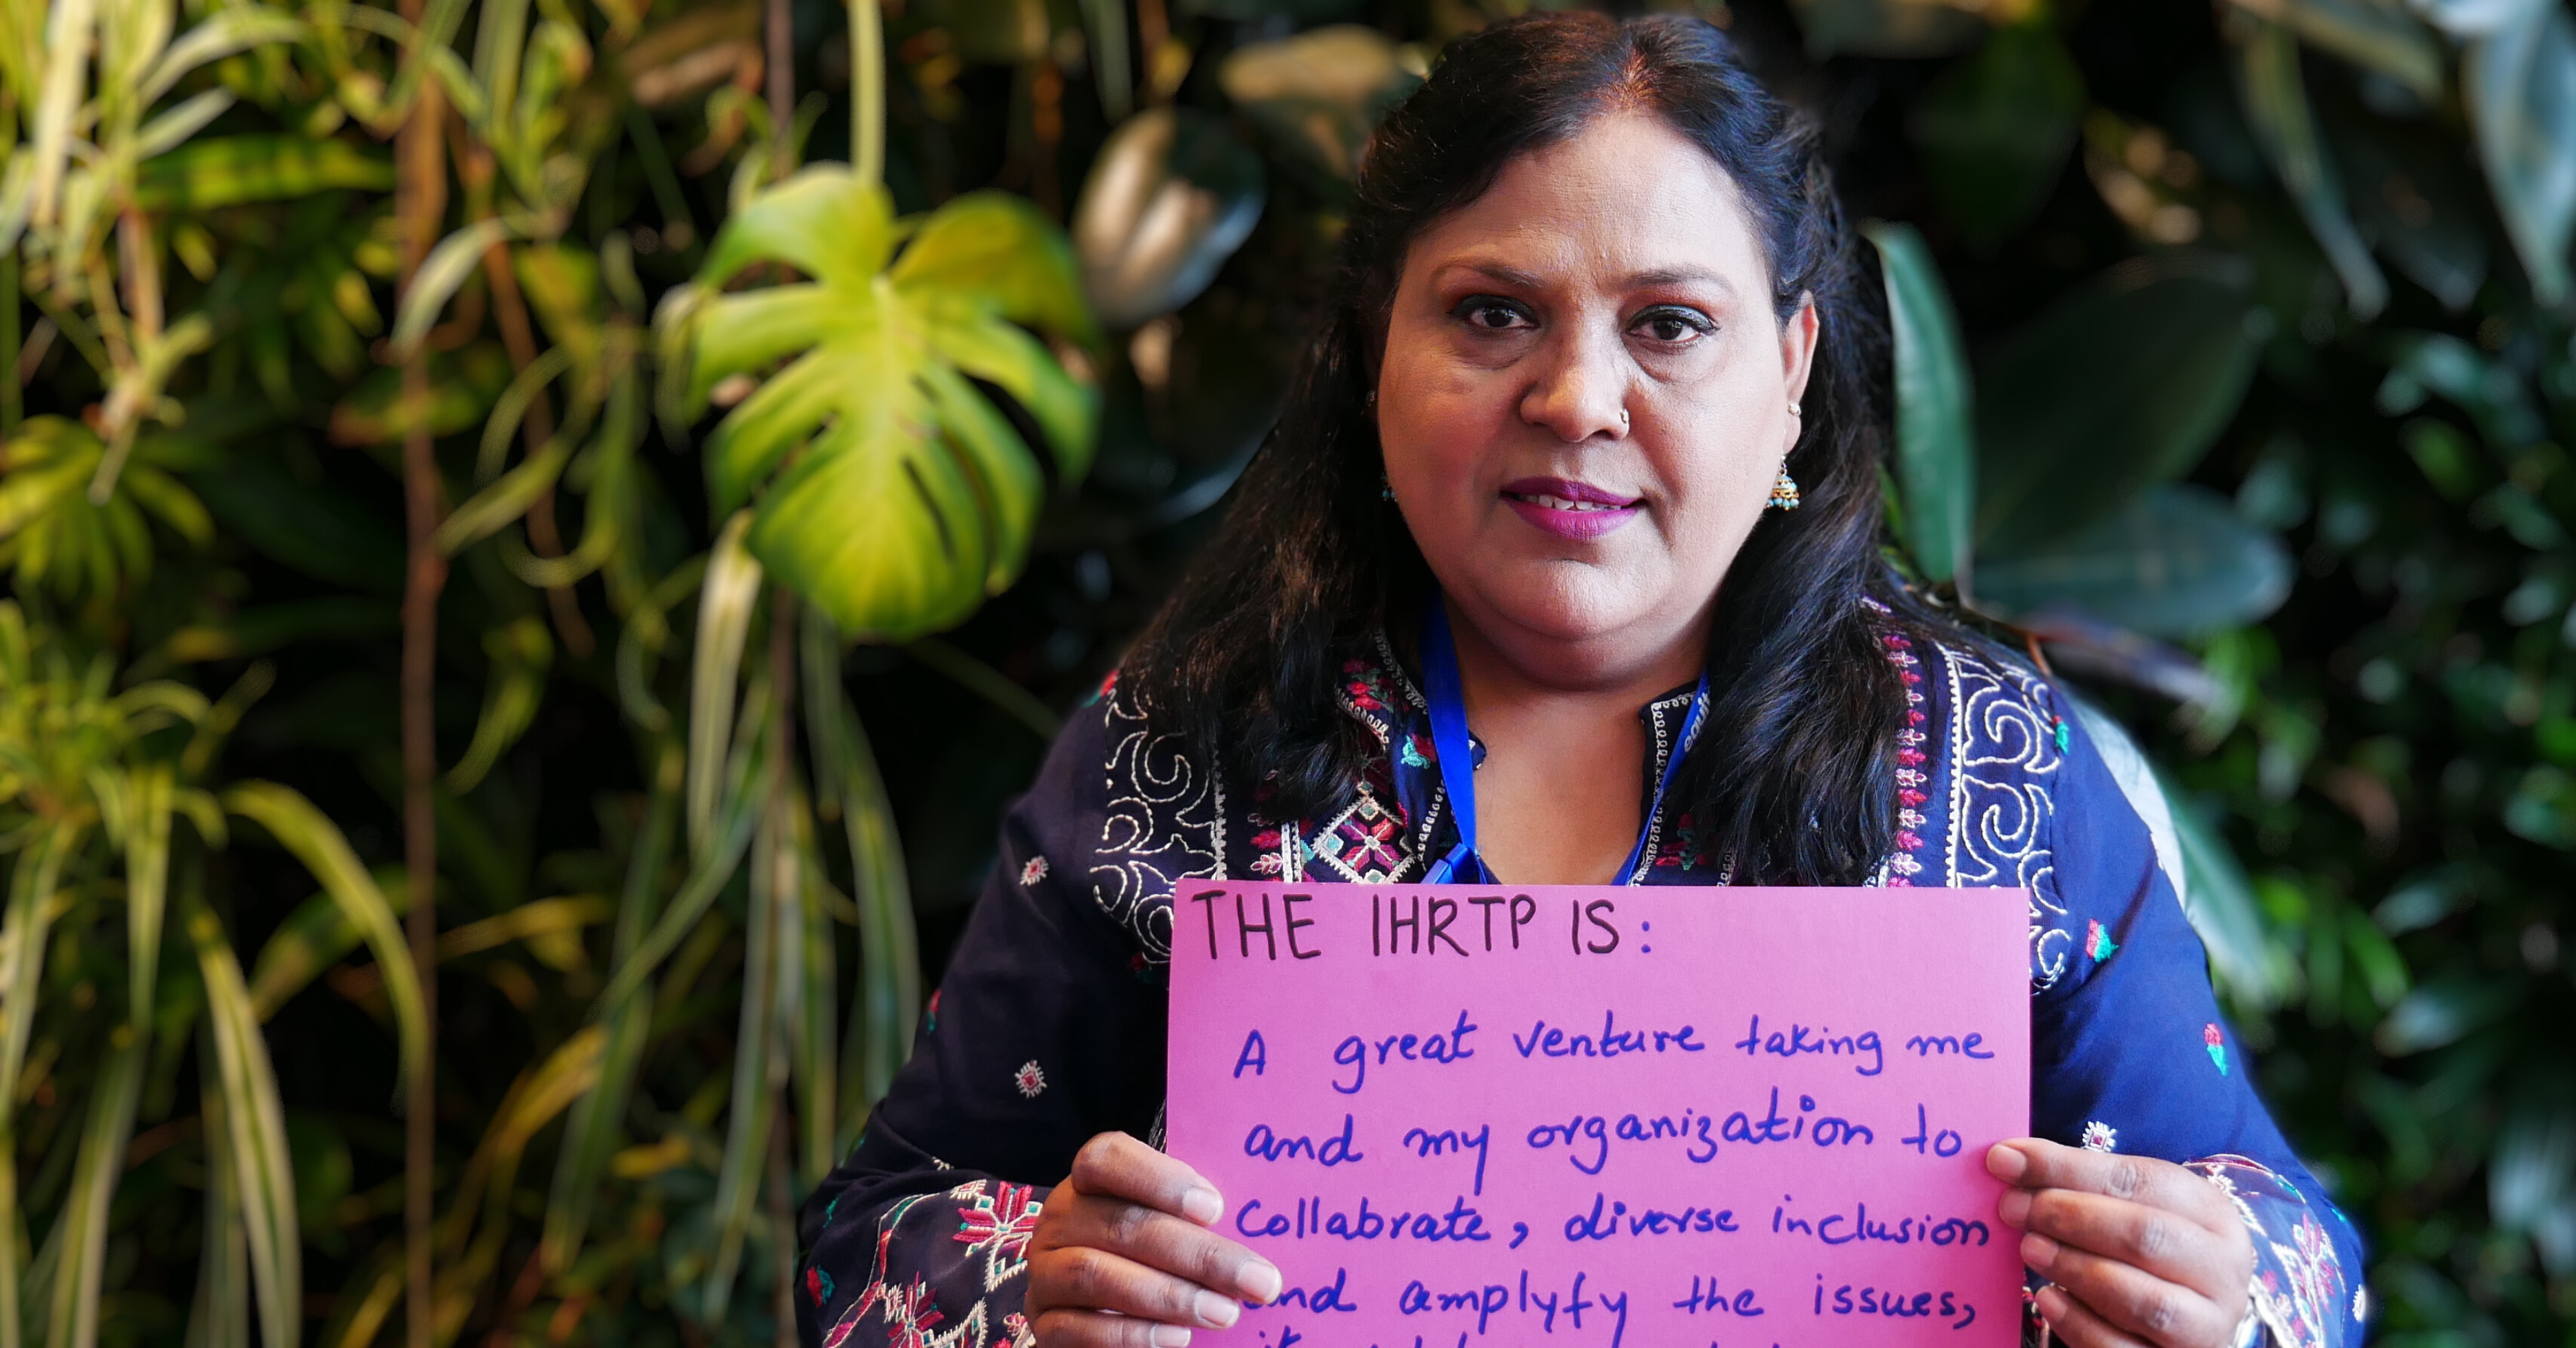 THE IHRTP IS:
A great venture taking me
and my organization to
Collabrate, diverse inclusion
and amplyfy the issues,